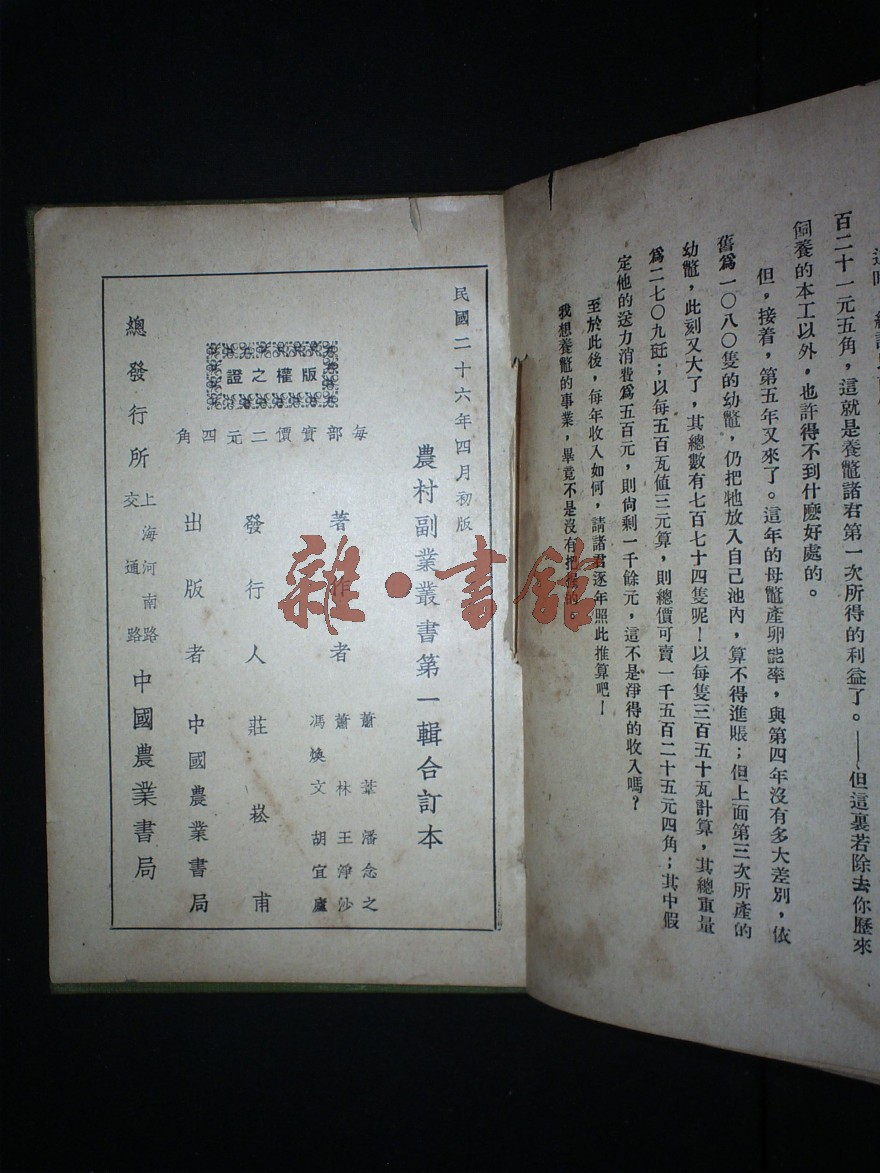 百二十一元五角,這就是養鼈諸君第一次所得的利益了。——但這裏若除去你歷來
飼養的本工以外,也許得不到什麽好處的。
但,接着,第五年又來了。這年的母鼈產卵能率,與第四年沒有多大差別,依
舊爲一〇八〇隻的幼鼈,仍把牠放入自己池內,算不得進賬;但上面第三次所產的
幼鼈,此刻又大了,其總數有七百七十四隻呢!以每隻三百五十瓦計算,其總重量
爲二七〇九瓩;以每五百瓦値三元算,則總價可賣一千五百二十五元四角;其中假
定他的送力消費爲五百元,則尙剩一千餘元,這不是淨得的收入嗎?
至於此後,每年收入如何,請諸君逐年照此推算吧!
我想養鼈的事業,畢竟不是沒有把握的。
民國二十六年四月初版
農村副業叢書第一輯合訂本
版權之證
每部實價二元四角
著作者
蕭葦 潘念之
蕭林 王淨沙
馮煥文 胡宜廬
發行人 莊崧甫
出版者 中國農業書局
總發行所 上海河南路交通路 中國農業書局
雜·書館